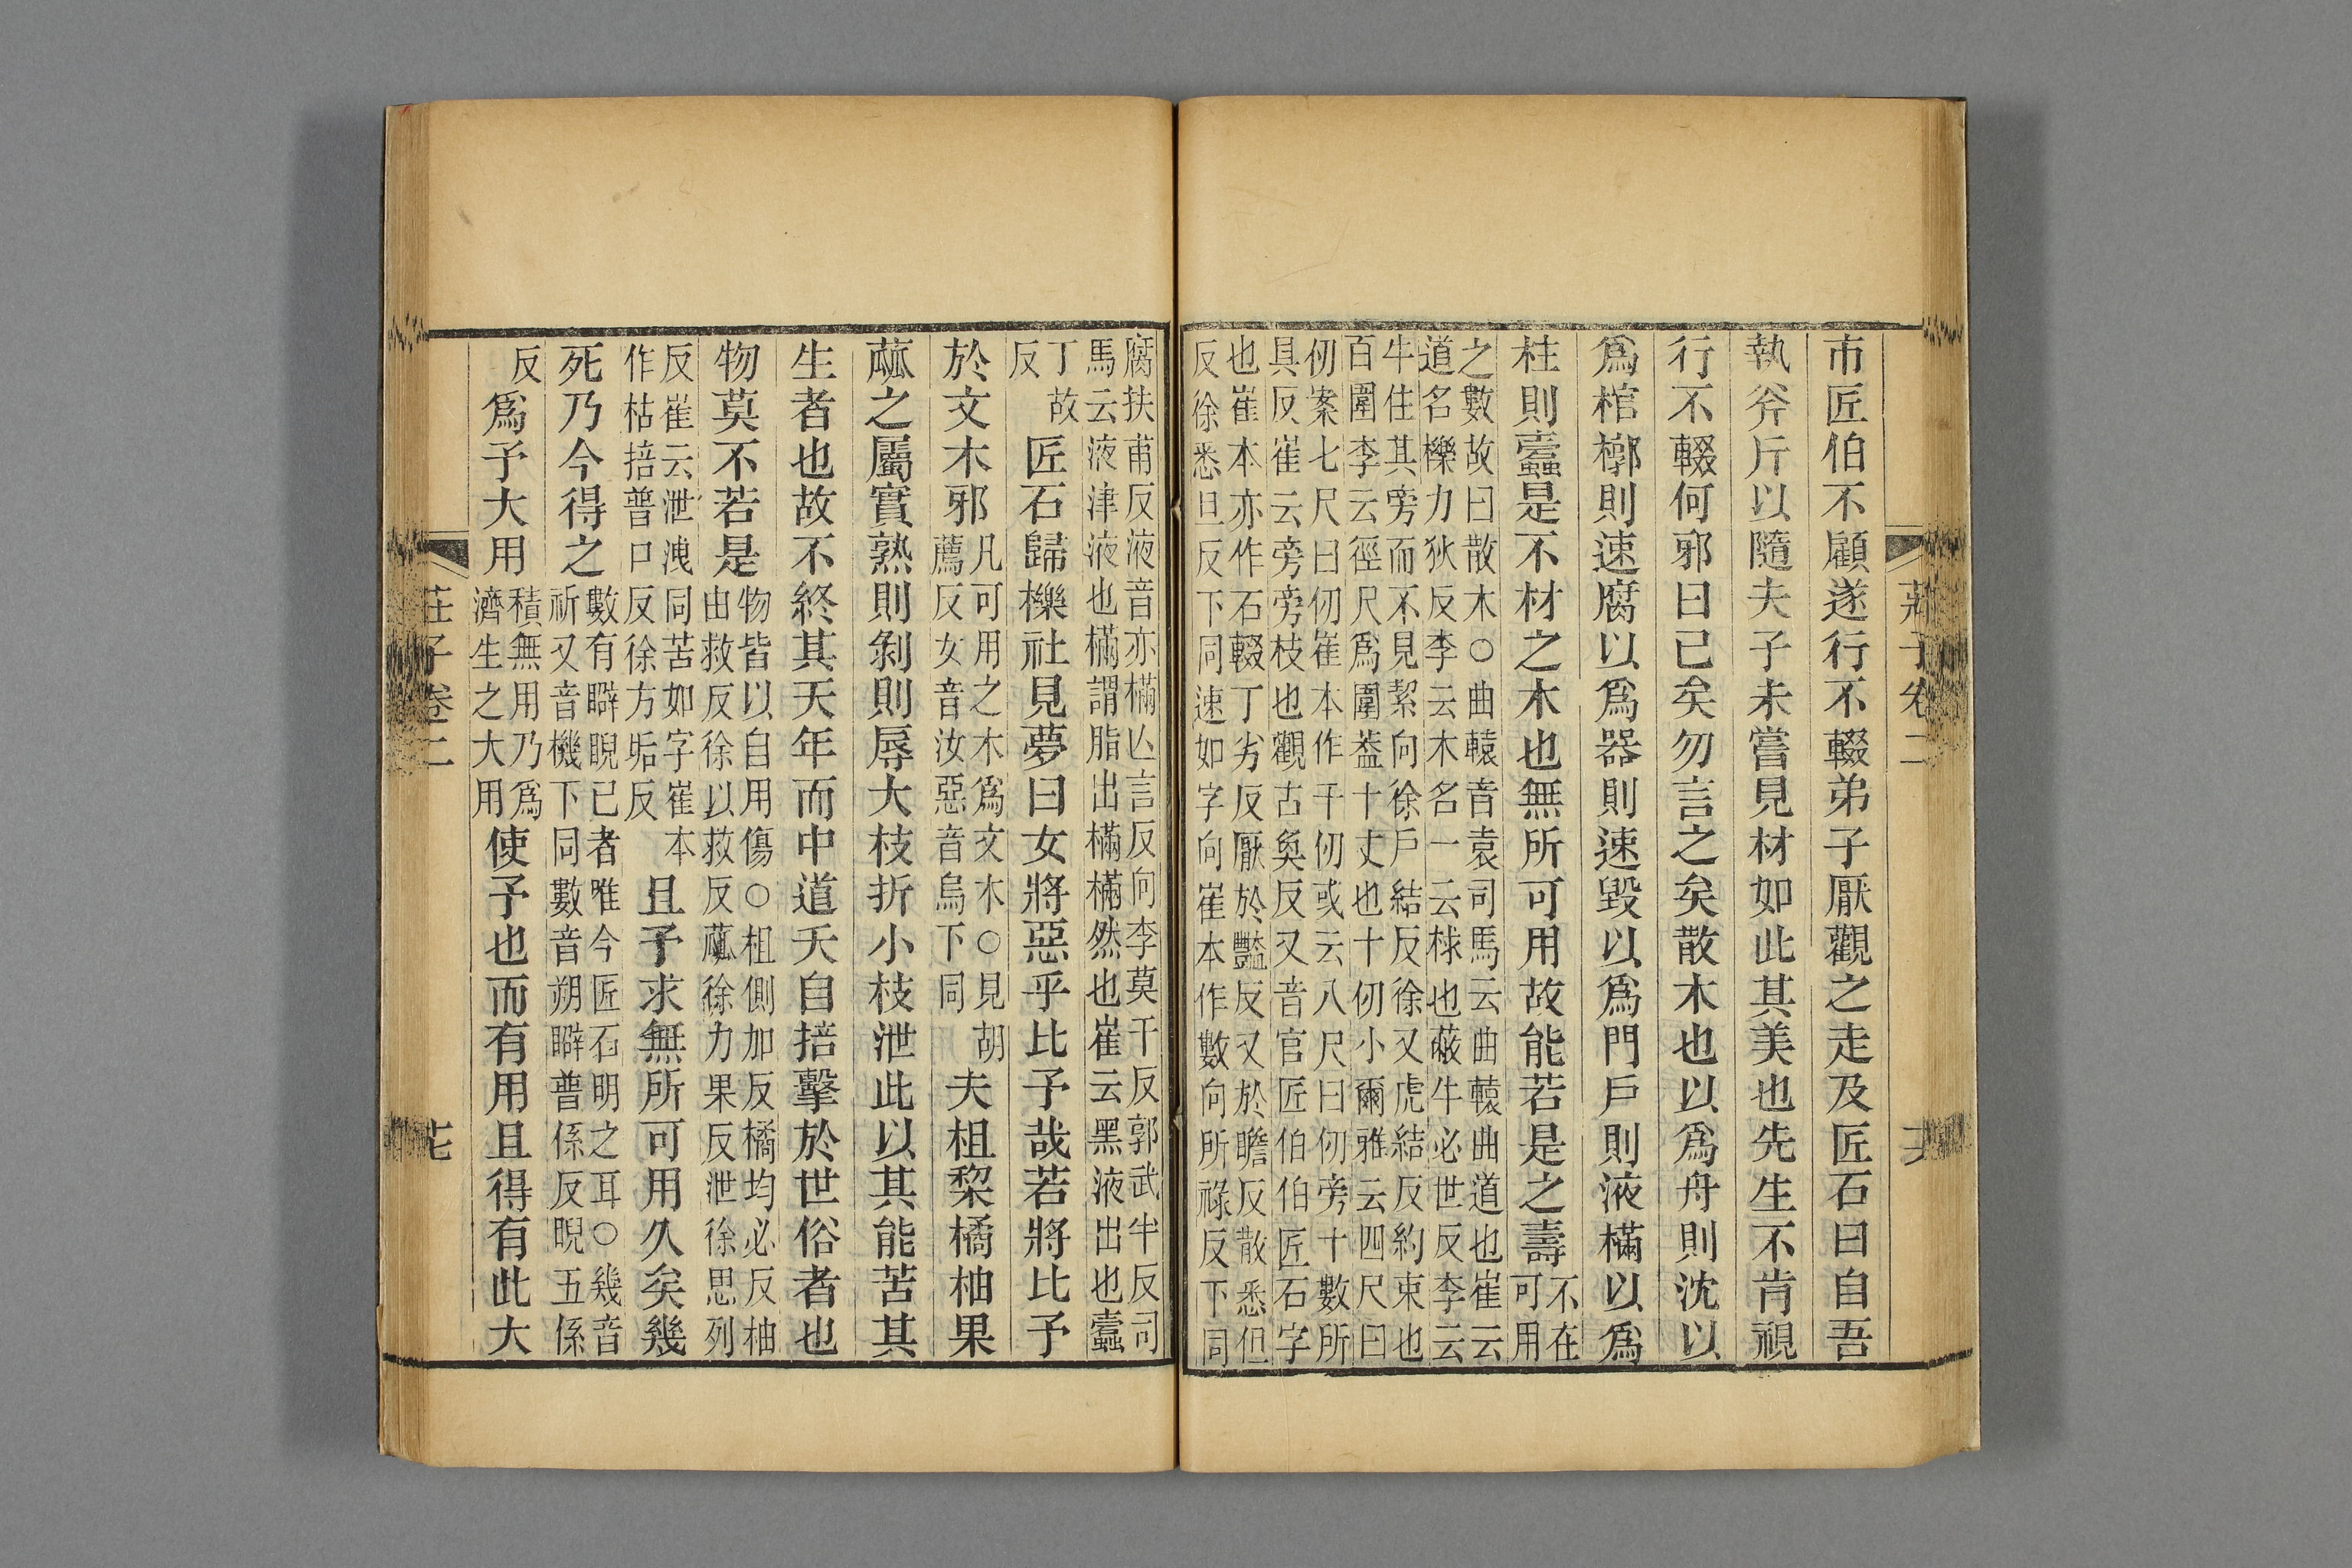 市匠伯不顧遂行不輟弟子厭觀之走及匠石曰自吾
執斧斤以隨夫子未嘗見材如此其美也先生不肯視
行不輟何邪曰已矣勿言之矣散木也以爲舟則沈以
爲棺槨則速腐以爲器則速毀以爲門戶則液樠以爲
柱則蠹是不材之木也無所可用故能若是之壽
不在
可用
之數故曰散木○曲轅音袁司馬云曲轅曲道也崔云
道名櫟力狄反李云木名一云梂也蔽牛必世反李云
牛住其旁而不見絜向徐戶結反徐又虎結反約束也
百圍李云徑尺爲圍葢十丈也十仞小爾雅云四尺曰
仞案七尺曰仞崔本作千仞或云八尺曰仞旁十數所
具反崔云旁旁枝也觀古奐反又音官匠伯伯匠石字
也崔本亦作石輟丁劣反厭於豔反又於瞻反散悉但
反徐悉旦反下同速如字向崔本作數向所祿反下同
腐扶甫反液音亦樠亾言反向李莫干反郭武半反司
馬云液津液也樠謂脂出樠樠然也崔云黑液出也蠹
丁故
反
匠石歸櫟社見夢曰女將惡乎比予哉若將比予
於文木邪
凡可用之木爲文木○見胡
薦反女音汝惡音烏下同
夫柤棃橘柚果
蓏之屬實熟則剝則辱大枝折小枝泄此以其能苦其
生者也故不終其天年而中道夭自掊擊於世俗者也
物莫不若是
物皆以自用傷○柤側加反橘均必反柚
由救反徐以救反蓏徐力果反泄徐思列
反崔云泄洩同苦如字崔本
作枯掊普口反徐方垢反
且予求無所可用久矣幾
死乃今得之
數有睥睨已者唯今匠石明之耳○幾音
祈又音機下同數音朔睥普係反睨五係
反
爲予大用
積無用乃爲
濟生之大用
使予也而有用且得有此大
莊子卷二
莊子卷二